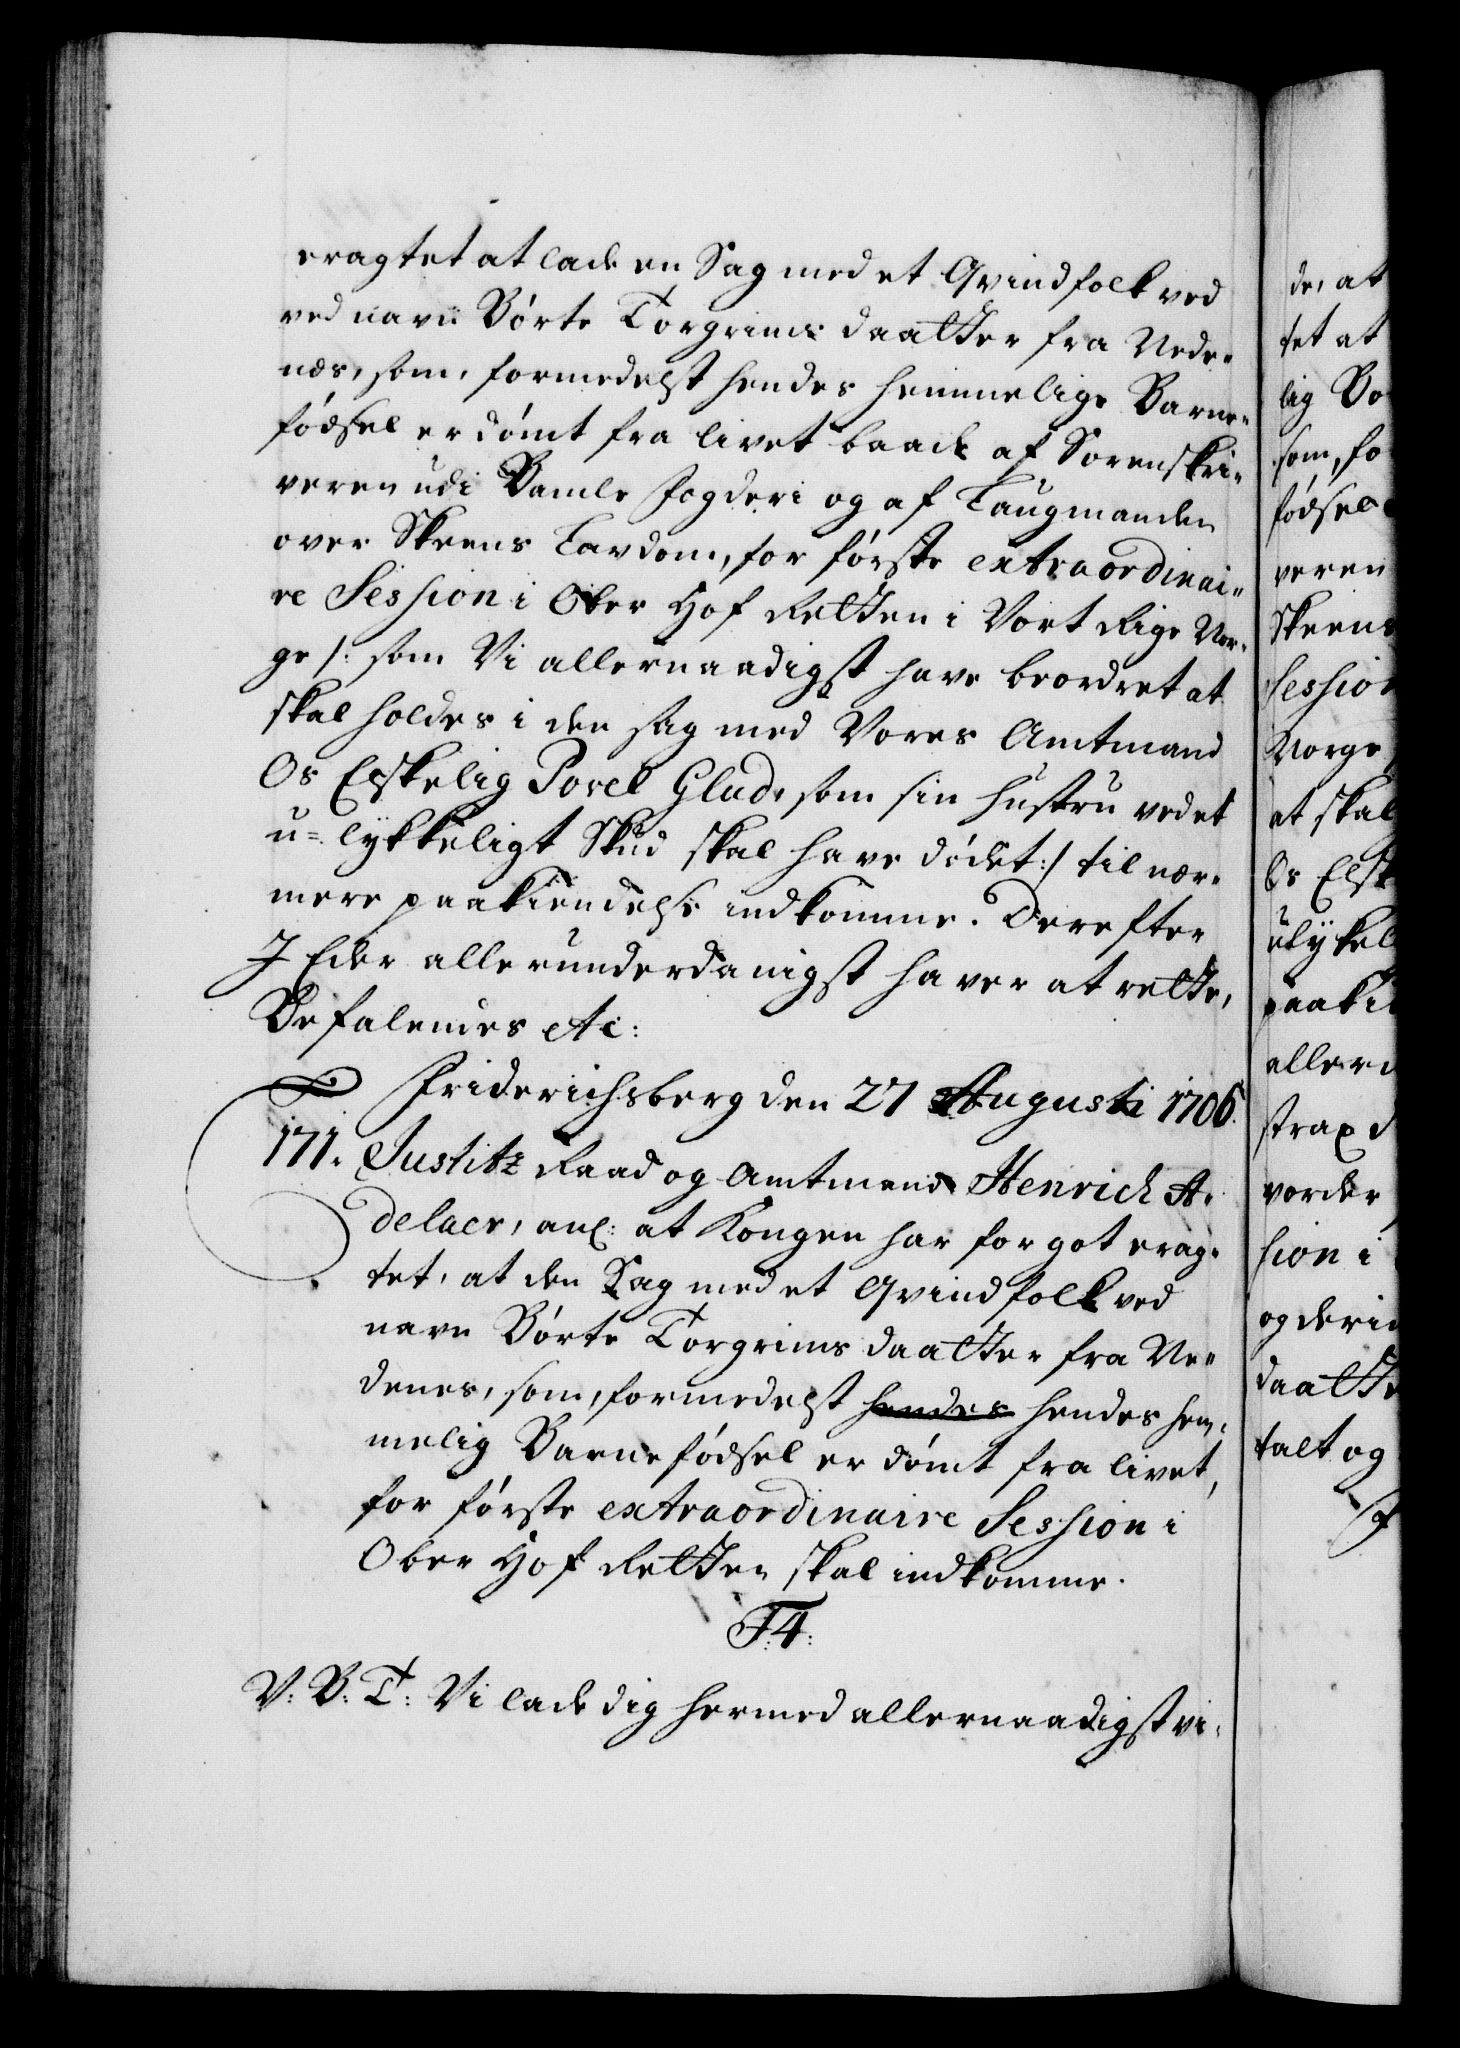 eragtet at lade en Sag med et Qvindfolk ved
ved navn Börte Torgrims daatter fra Nede-
næs, som, formedelst hendes hemmelige Barne-
födsel er dömt fra livet baade af Sorenskri-
veren udi Bamle Fogderi og af Laugmanden
over Skeens Lavdom, for förste extraordinai-
re Session i Ober Hof Retten i Vort Rige Nor-
ge /: som Vi allernaadigst have beordret at
skal holdes i den sag med Vores Amtmand
Os Elskelig Povel Glud, som sin hustru ved et
u-lykkeligt Skud skal have dödet :/ til nær-
mere paakiendelse indkomme. Derefter
I Eder allerunderdanigst haver at rette,
Befalendes etc:
Friderichsberg den 27 Augusti 1706.
171. Justitz Raad og Amtmand Henrich A-
delaer, anl: at Kongen har for got erag-
tet, at den Sag med et Qvindfolk ved
navn Börte Torgrims daatter fra Ne-
denes, som, formedelst hendes hendes hem-
melig Barnefödsel er dömt fra livet,
for förste extraordinaire Session i
Ober Hof Retten skal indkomme.
F4:
V: B: T: Vi lade dig hermed allernaadigst vi-
de, at
tet at
lig Bö
som, fo
födsel
veren
Skeens
Session
Norge
at skal
Os Elsk
ulykel
paaki
allerd
strax d
vorder
sion i
og derin
daatte
talt og